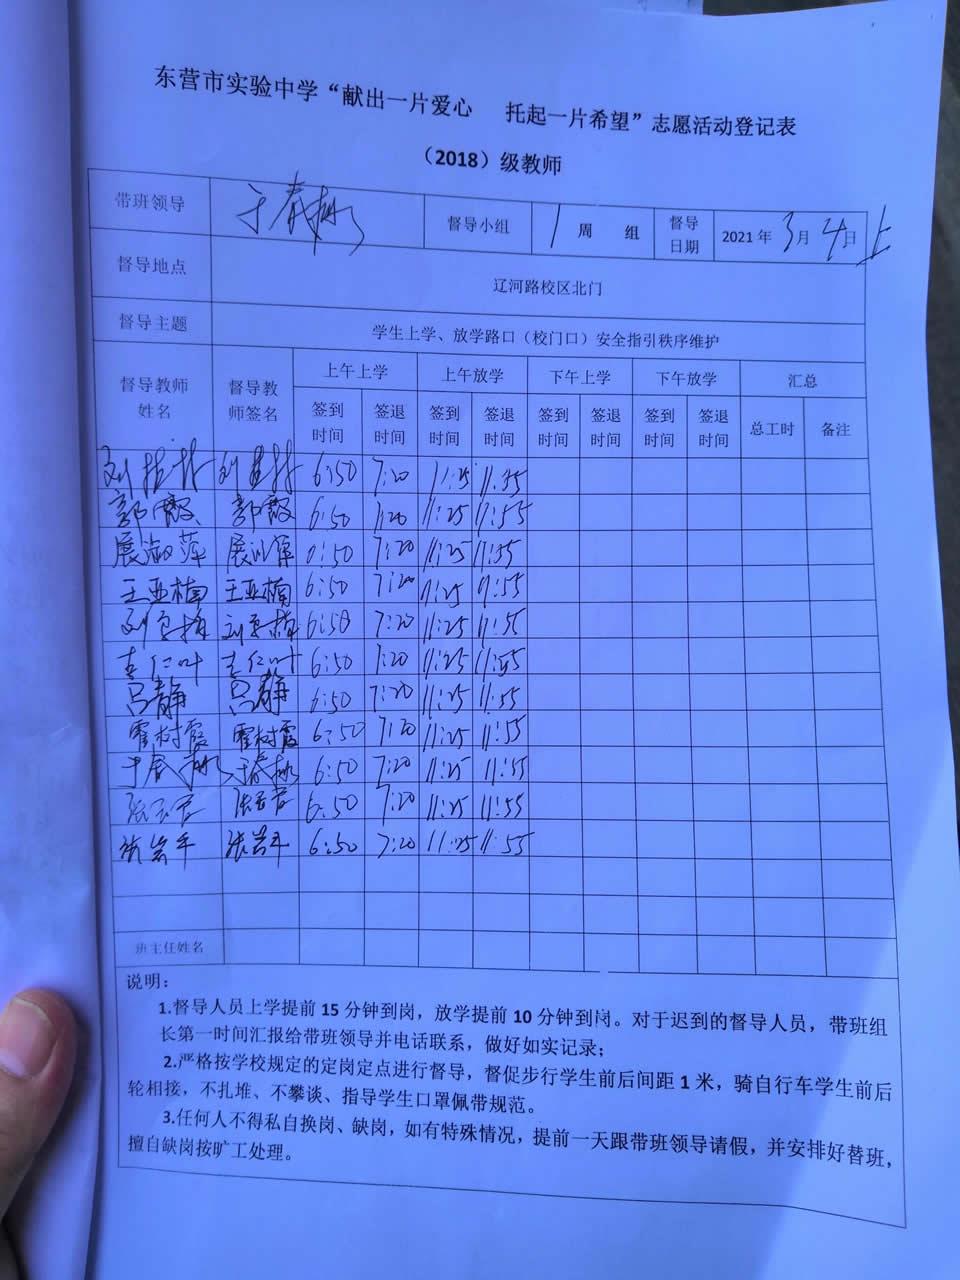 东营市实验中学“献出一片爱心 托起一片希望”志愿活动登记表
（2018）级教师
带班领导 于春梅 督导小组 1 周 组 督导日期 2021年3月4日上
督导地点 辽河路校区北门
督导主题 学生上学、放学路口（校门口）安全指引秩序维护
督导教师姓名 督导教师签名 上午上学 上午放学 下午上学 下午放学 汇总
签到时间 签退时间 签到时间 签退时间 签到时间 签退时间 签到时间 签退时间 总工时 备注
6:50 7:20 11:25 11:55
郭霞 郭霞 6:50 7:20 11:25 11:55
展淑萍 6:50 7:20 11:25 11:55
王亚楠 王亚楠 6:50 7:20 11:25 11:55
6:50 7:20 11:25 11:55
6:50 7:20 11:25 11:55
吕静 吕静 6:50 7:20 11:25 11:55
霍树霞 霍树霞 6:50 7:20 11:25 11:55
于春梅 于春梅 6:50 7:20 11:25 11:55
6:50 7:20 11:25 11:55
张岩平 张岩平 6:50 7:20 11:25 11:55
班主任姓名
说明：
1.督导人员上学提前15分钟到岗，放学提前10分钟到岗。对于迟到的督导人员，带班组
长第一时间汇报给带班领导并电话联系，做好如实记录；
2.严格按学校规定的定岗定点进行督导，督促步行学生前后间距1米，骑自行车学生前后
轮相接，不扎堆、不攀谈、指导学生口罩佩带规范。
3.任何人不得私自换岗、缺岗，如有特殊情况，提前一天跟带班领导请假，并安排好替班，
擅自缺岗按旷工处理。